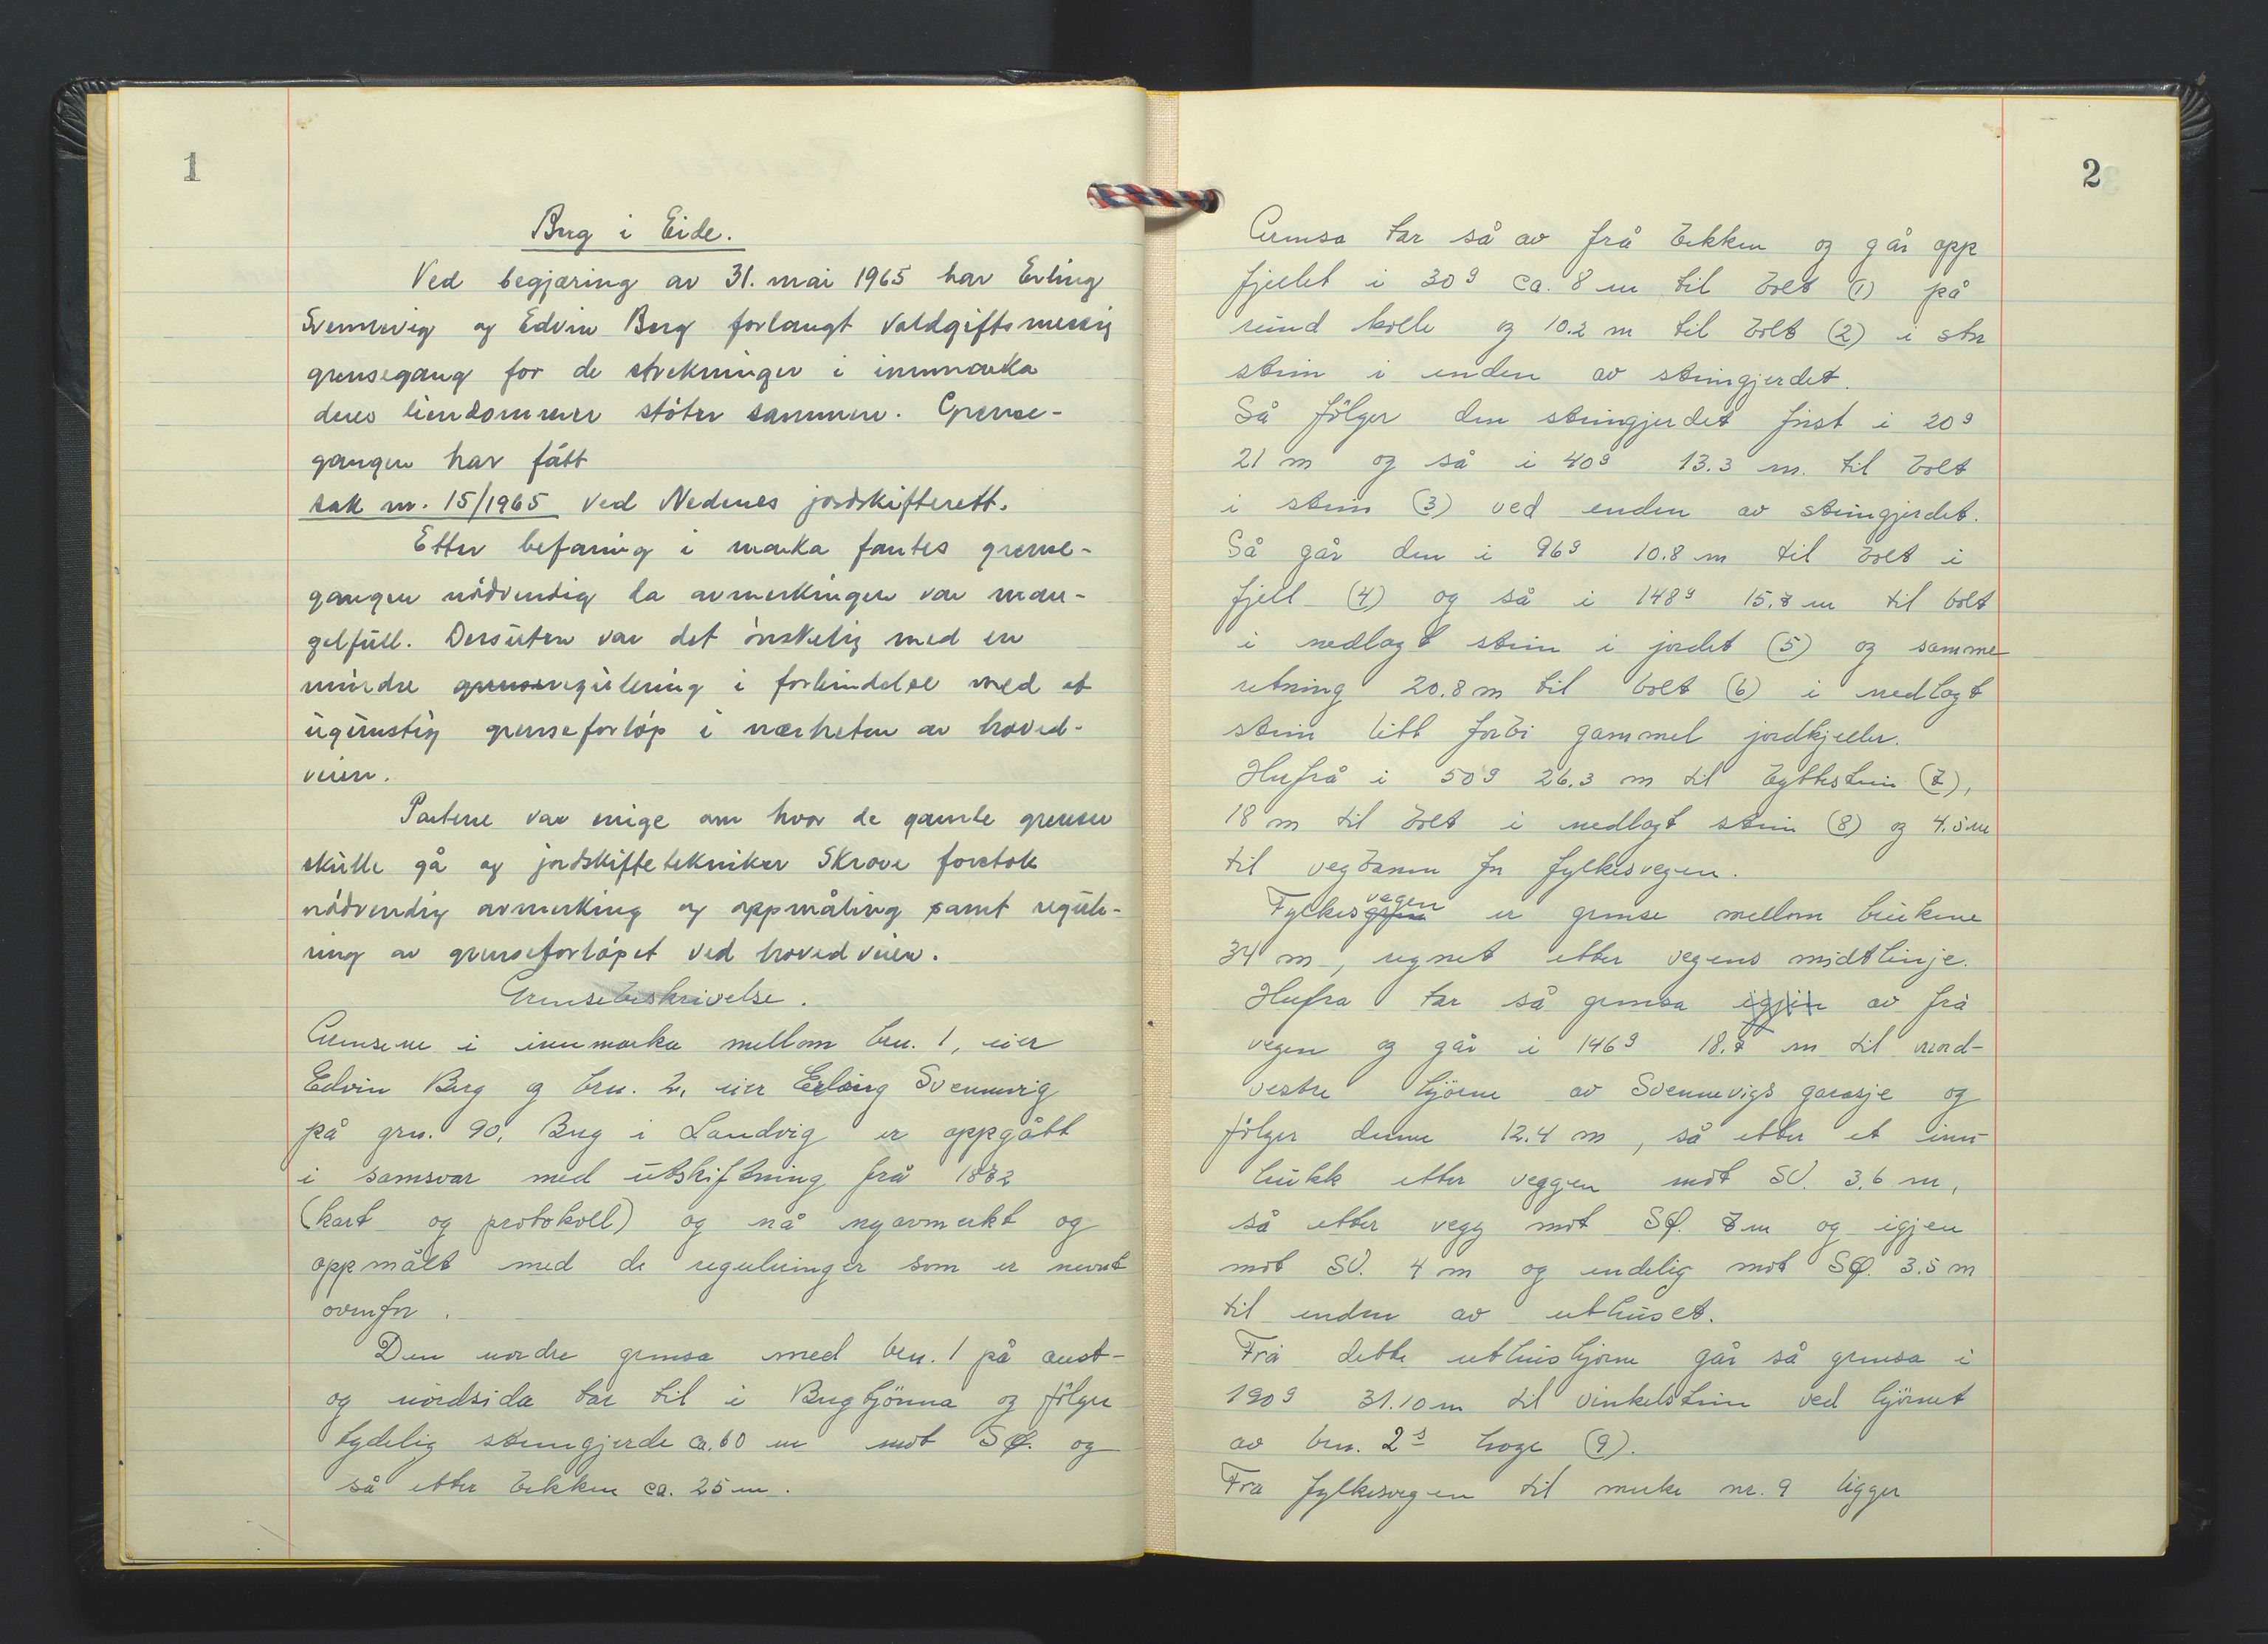 1
Berg i Eide.
Ved begjæring av 31. mai 1965 har Erling
Svennevig og Edvin Berg forlangt voldgiftsmessig
grensegang for de strekninger i innmarka
deres eiendommer støter sammen. Grense-
gangen har fått
sak nr. 15/1965 ved Nedenes jordskifterett.
Etter befaring i marka fantes grense-
gangen nødvendig da avmerkingen var man-
gelfull. Dessuten var det ønskelig med en
mindre grenseregulering i forbindelse med et
ugunstig grenseforløp i nærheten av hoved-
veien.
Partene var enige om hvor de gamle grenser
skulle gå og jordskiftetekniker Skrove foretok
nødvendig avmerking og oppmåling samt regule-
ring av grenseforløpet ved hovedveien.
Grensebeskrivelse.
Grensene i innmarka mellom bru. 1, eier
Edvin Berg og bru. 2, eier Erling Svennevig
på gru. 90, Berg i Landvig er oppgått
i samsvar med utskiftning frå 1872
(kart og protokoll) og nå nyavmerkt og
oppmålt med de reguleringer som er nevnt
ovenfor.
Den nordre grensa med bru. 1 på aust-
og nordsida tar til i Bergtjönna og fölger
tydelig steingjerde ca. 60 m mot SØ. og
så etter bekken ca. 25 m.
2
Grensa tar så av frå bekken og går opp
fjellet i 30g ca. 8 m til bolt (1) på
rund kolle og 10.2 m til bolt (2) i stor
stein i enden av steingjerdet.
Så fölger den steingjerdet först i 20g
21 m og så i 40g 13.3 m. til bolt
i stein (3) ved enden av steingjerdet.
Så går den i 96g 10.8 m til bolt i
fjell (4) og så i 148g 15.7 m til bolt
i nedlagt stein i jordet (5) og samme
retning 20.8 m til bolt (6) i nedlagt
stein litt forbi gammel jordkjeller.
Herfrå i 50g 26.3 m til byttestein (7),
18 m til bolt i nedlagt stein (8) og 4.5 m
til vegkanten for fylkesvegen.
Fylkesvegen er grense mellom brukene
34 m, regnet etter vegens midtlinje.
Herfra tar så grensa igjen av frå
vegen og går i 146g 18.7 m til nord-
vestre hjörne av Svennevigs garasje og
fölger denne 12.4 m, så etter et inn-
hukk etter veggen mot SV. 3.6 m,
så etter vegg mot SØ. 7 m og igjen
mot SV. 4 m og endelig mot SØ. 3.5 m
til enden av uthuset.
Frå dette uthushjörne går så grensa i
190g 31.10 m til vinkelstein ved hjörnet
av bru. 2s hage (9).
Fra fylkesvegen til merke nr. 9 ligger